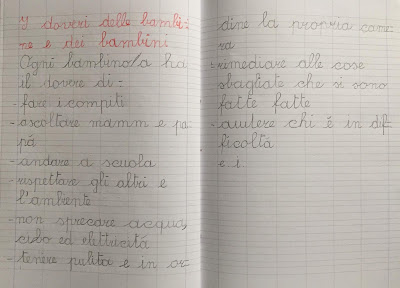 I doveri delle bambi-
ne e dei bambini
Ogni bambino/a ha
il dovere di:
- fare i compiti
- ascoltare mamm e pa-
pá
- andare a scuola
- rispettare gli altri e
l'ambiente
- non sprecare acqua,
cibo ed elettricitá
- tenere pulita e in or-
dine la propria came
ra
- rimediare alle cose
sbagliate che si sono
fatte fatte
- aiutere chi é in dif
ficoltá
e i